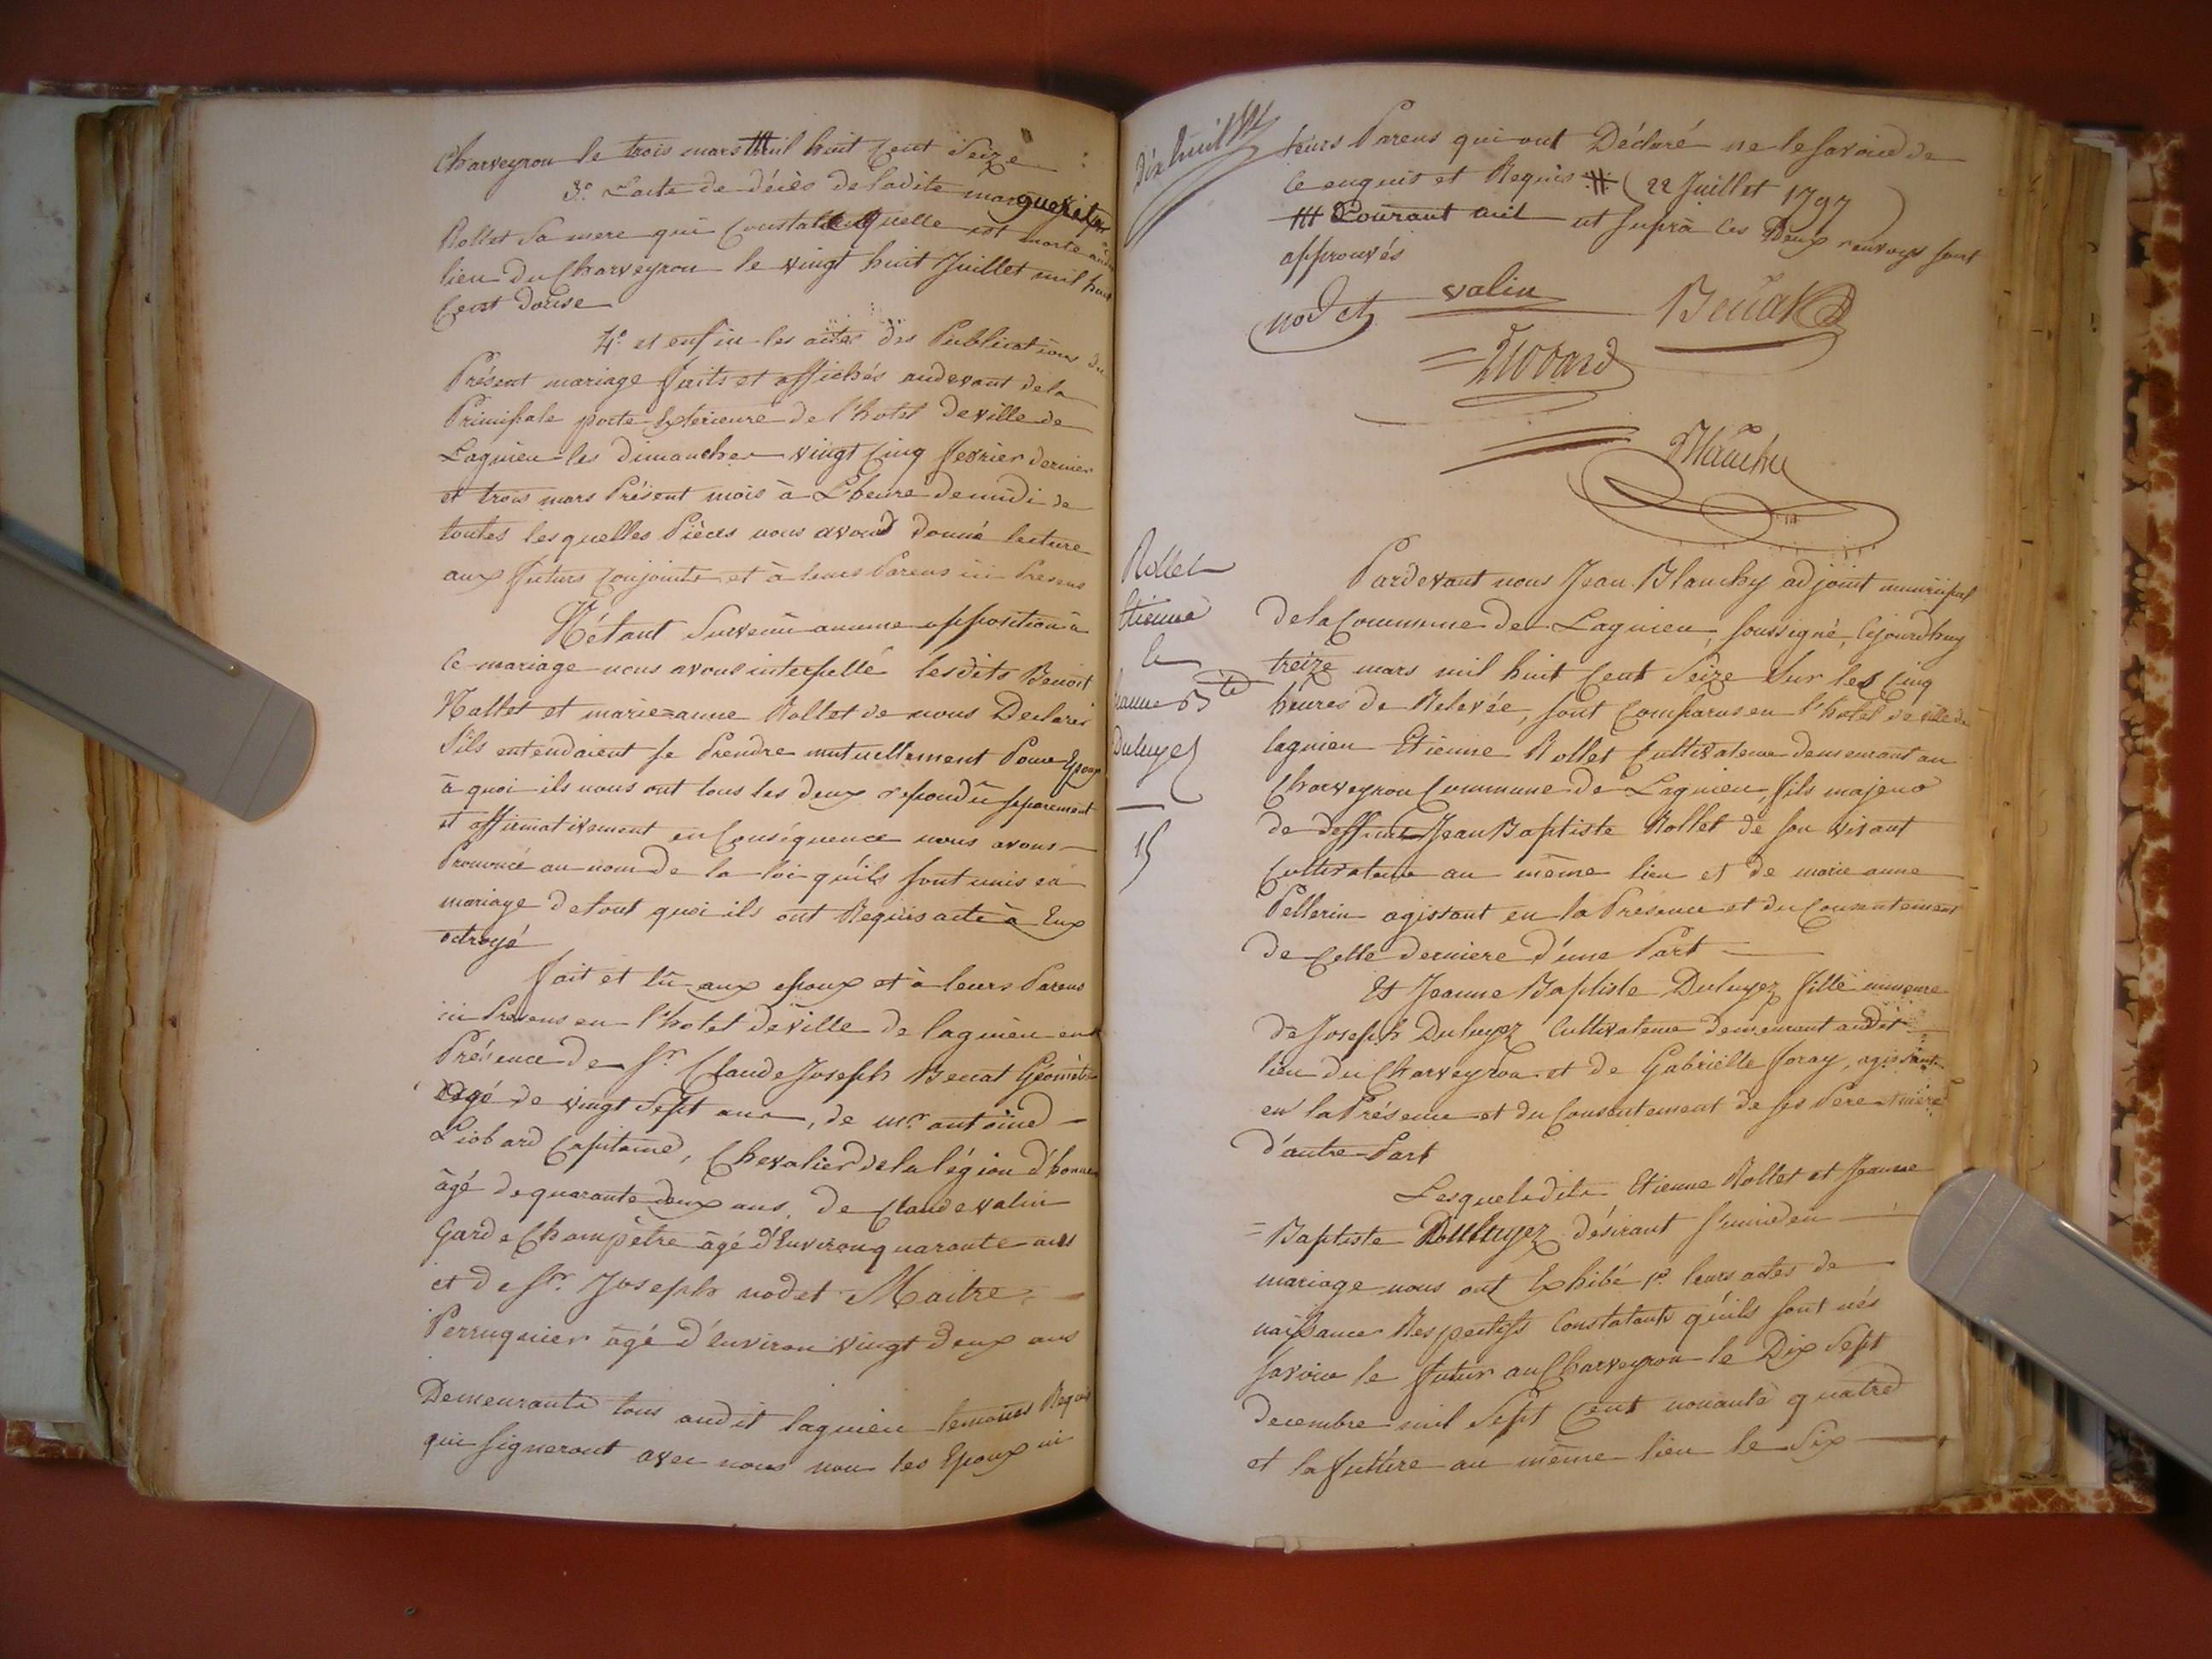 Charveyron le trois mars mil huit Cent Seize
3.o Lacte de décès de ladite marguerite
Rollet Sa mere qui Constate quelle est morte audit
lieu du Charveyron le vingt huit Juillet mil huit
Cent douse
4.o et enfin les actes des Publications du
Présent mariage faits et affichés audevant de la
Principale porte Extérieure de l'hotel de ville de
Lagnieu les dimanches vingt Cinq fevrier dernier
et trois mars Présent mois à L'heure de midi de
toutes lesquelles Pièces nous avons donné lecture
aux futurs Conjoints et à leurs Parens ici Presens
N'étant Survenu aucune opposition à
Ce mariage nous avons interpellé lesdits Benoit
Nallet et marie=anne Rollet de nous Declarer
S'ils entendaient se Prendre mutuellement Pour Epoux
à quoi ils nous ont tous les deux repondu séparement
et affirmativement en Conséquence nous avons
Prononcé au nom de la loi qu'ils sont unis en
mariage de tout quoi ils ont Requis acte à Eux
octroyé
fait et lû aux epoux et à leurs Parens
ici Presens en l'hotel de ville de lagnieu en
Présence de Sr. Claude Joseph Benat Géomètre
agé de vingt Sept ans, de mr. antoine
Liobard Capitaine, Chevalier de la légion d'honneur
âgé de quarante deux ans, de Claude valin
Garde Champètre âgé d'Environ quarante ans
et de Sr. Joseph nodet Maitre
Perruquier âgé d'environ vingt deux ans
Demeurants tous audit lagnieu temoins Requis
qui Signeront avec nous non les Epoux ni
Dix huit
leurs Parens qui ont Déclaré ne le Savoir de
Ce enquis et Requis # (22 Juillet 1797)
# Courant mil ut Suprà les Deux renvoys sont
approuvés
nodet valin Benat
Liobard
Blanchy
Rollet
Etienne
Le
Jeanne Bte
Duluyez
15
Pardevant nous Jean Blanchy adjoint municipal
de la Commune de Lagnieu, soussigné, Cejourdhuy
treize mars mil huit Cent Seize Sur les Cinq
heures de Relevée, sont Comparus en l'hotel de ville de
lagnieu Etienne Rollet Cultivateur demeurant au
Charveyron Commune de Lagnieu, fils majeur
de deffunt Jean Baptiste Rollet de son vivant
Cultivateur au même lieu et de marie anne
Pellerin agissant en la Présence et du Consentement
de Cette derniere d'une Part
Et Jeanne Baptiste Duluyez fille mineure
de Joseph Duluyez Cultivateur demeurant audit
lieu du Charveyron et de Gabrielle foray, agissante
en la Présence et du Consentement de ses Pere et mère
d'autre Part
Lesquels dits Etienne Rollet et Jeanne
=Baptiste Duluyez désirant s'unir en
mariage nous ont Exhibé 1.o leurs actes de
naissance Respectifs Constatant qu'ils sont nés
Savoir le futur au Charveyron le Dix Sept
decembre mil Sept Cent nonante quatre
et la future au même lieu le Six